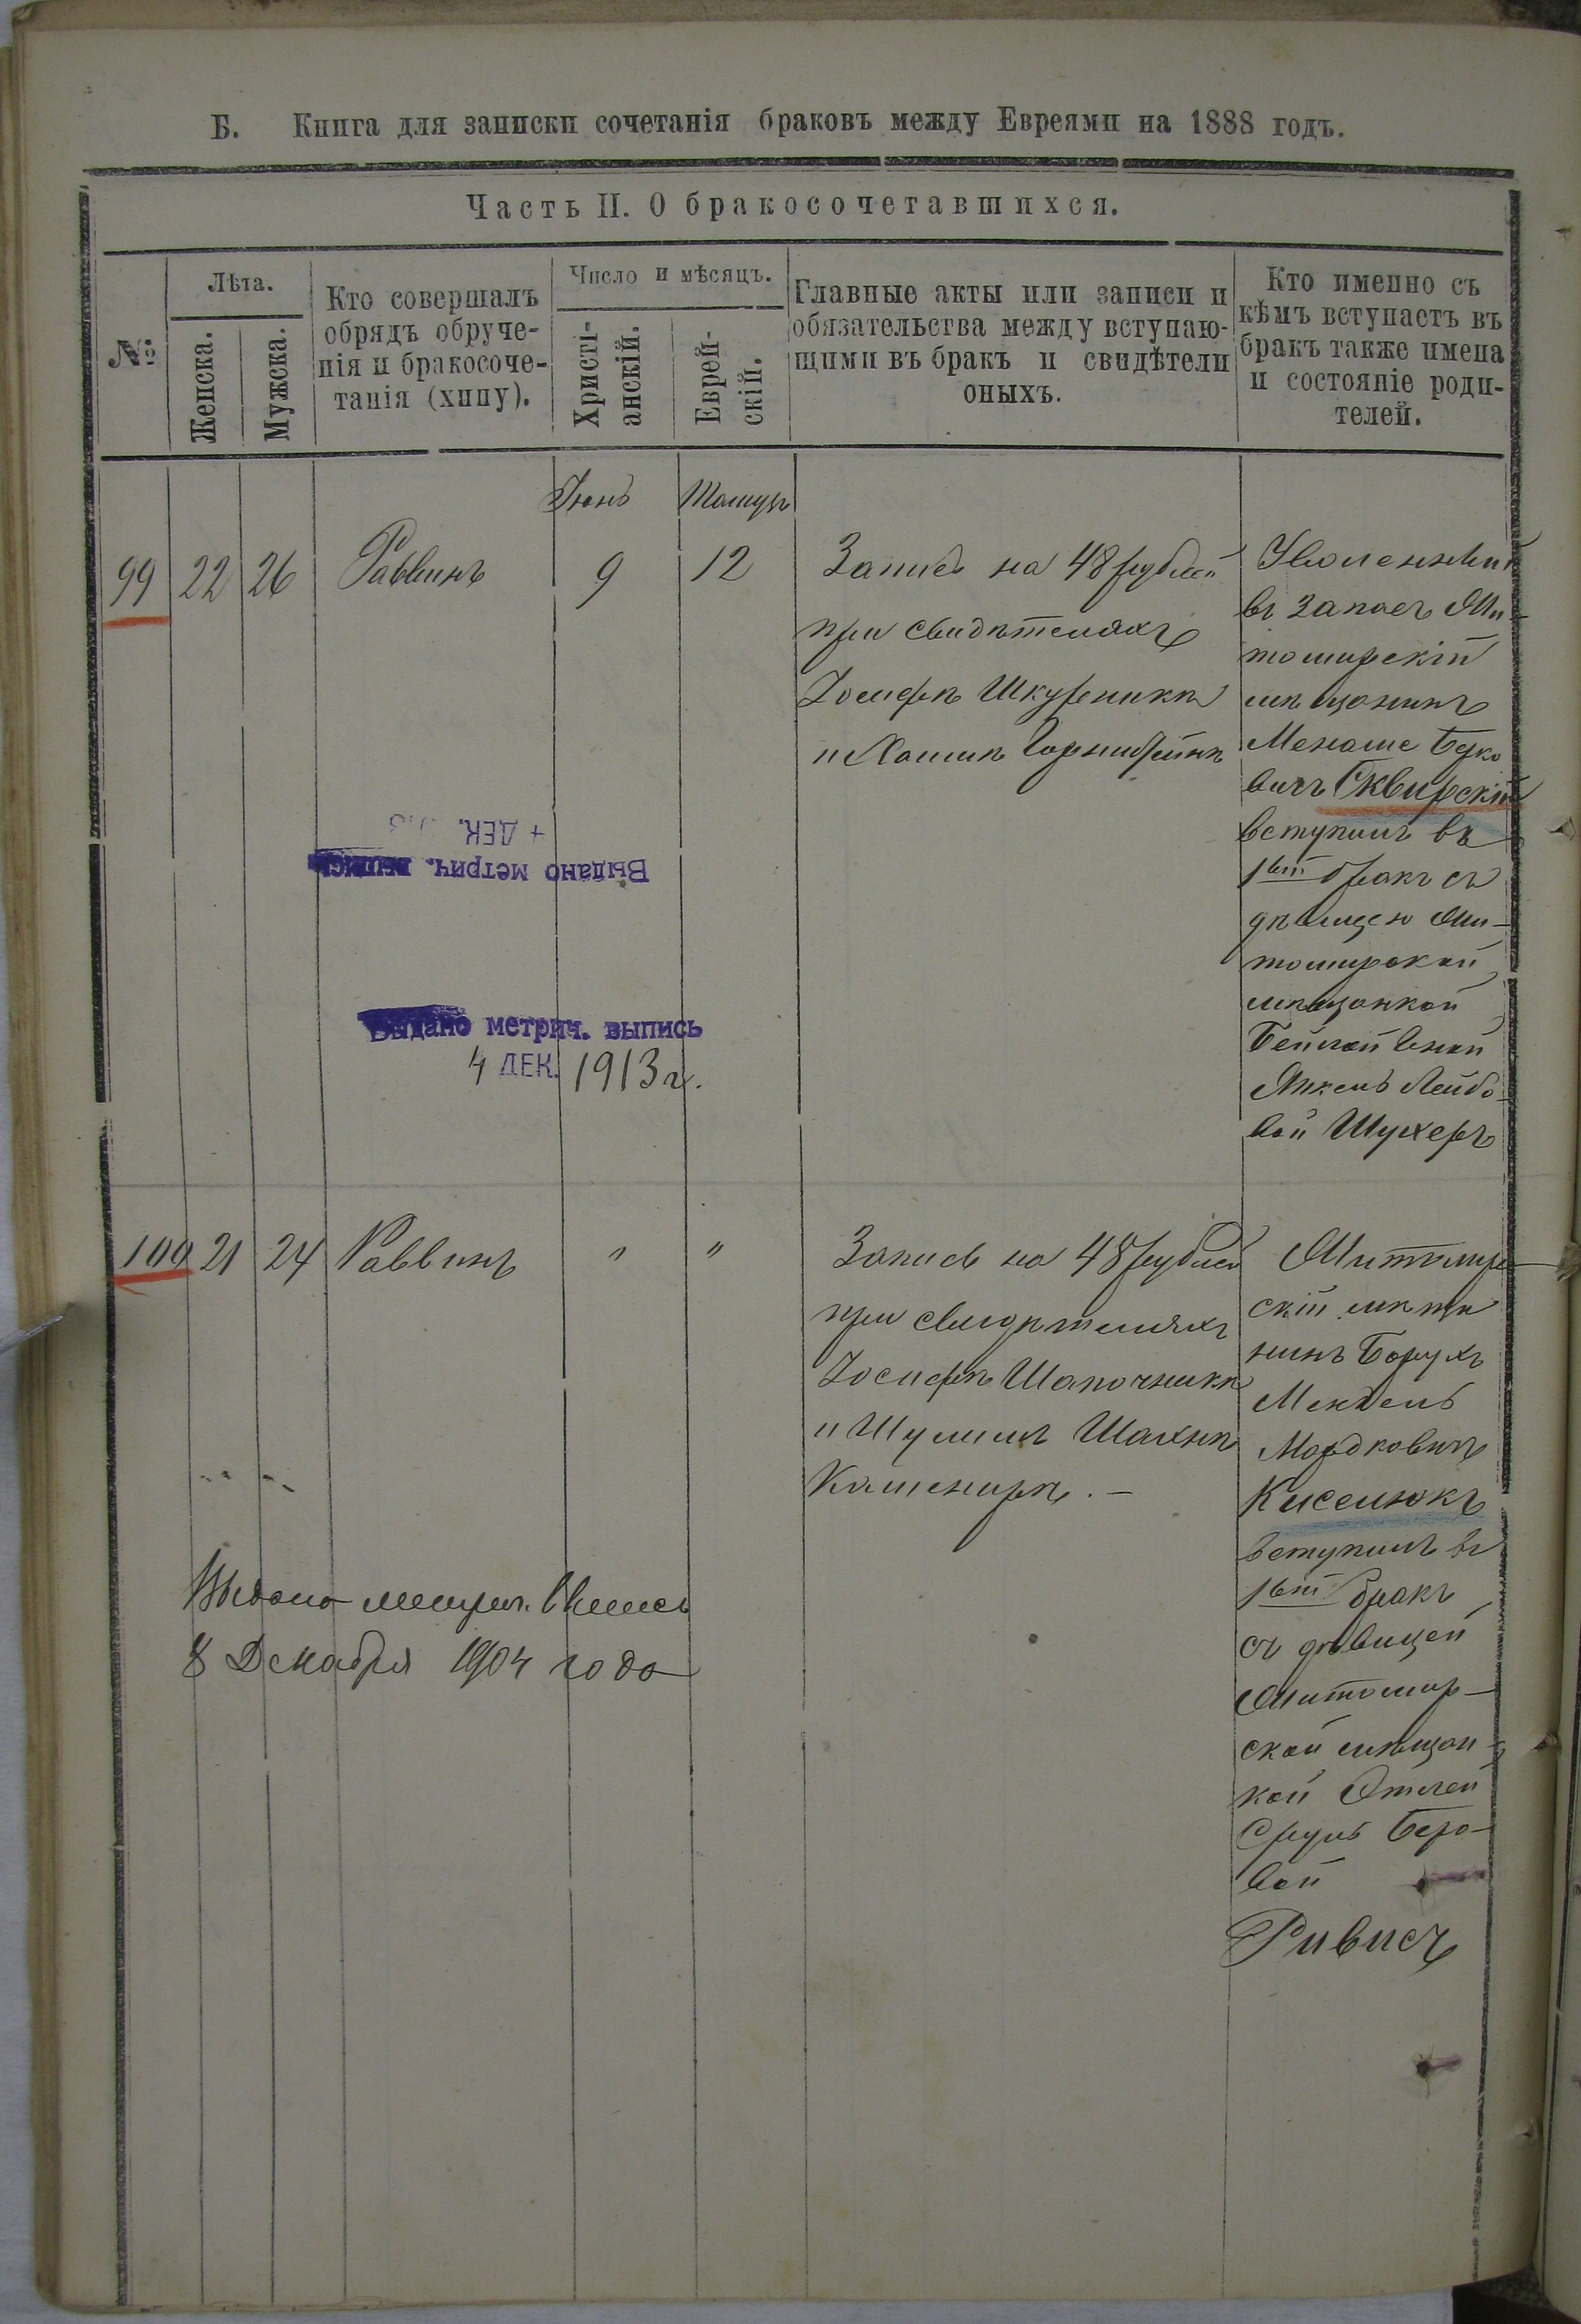 Б. Книга для записки сочетанія браковъ между Евреями на 1888 годъ.
Часть II. О бракосочетавшихся.
№
Лѣта.
Женска.
Мужска.
Кто совершалъ
обрядъ обруче-
нія и бракосоче-
танія (хипу).
Число и мѣсяцъ.
Христі-
анскій.
Еврей-
скій.
Главные акты или записи и
обязательства между вступаю-
щими въ бракъ и свидѣтели
оныхъ.
Кто именно съ
кѣмъ вступаетъ въ
бракъ также имена
и состояніе роди-
телей.
Іюнь
Тамузъ
99
22
26
Раввинъ
9
12
Запись на 48 рублей
при свидѣтеляхъ
Іосифѣ Шкурникѣ
и Хаимѣ
Уволенный
въ запасъ Жи-
томирскій
мѣщанинъ
Менаше Берко
вичъ Сквирскій
вступилъ въ
1ый бракъ съ
дѣвицею Жи-
томирской
мѣщанкой
Бейлой Еной
Янкель Лейбо-
вой Шухеръ
+ ДЕК.
Выдано метрич. выпись
Выдано метрич. выпись
4 ДЕК. 1913 г.
100
21
24
Раввинъ
"
"
Запись на 48 рублей
при свидѣтеляхъ
Іосифѣ Шапочникѣ
и Шулимѣ Шахнѣ
Кашенирѣ. —
Житомир-
скій мѣща
нинъ Борухъ
Мендель
Мордковичъ
Киселюкъ
вступилъ въ
1ый бракъ
съ дѣвицей
Житомир-
ской мѣщан-
кой Этлей
Фрумъ Беро-
вой
Ривисъ
Выдана метрич. выпись
8 Декабря 1904 года